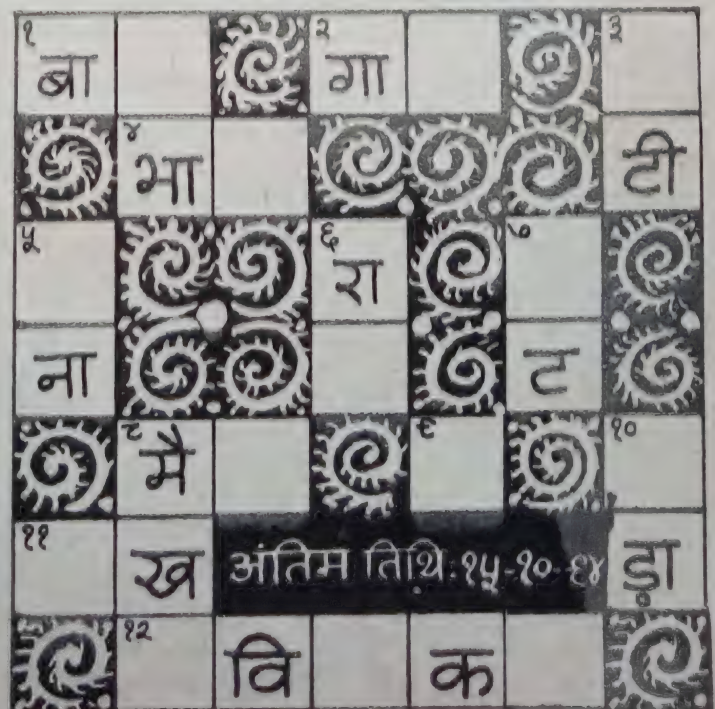 १ बा २ गा ३
४ भा टी
५ ६ रा ७
ना ट
८ मै ९ १०
११ ख अंतिम तिथि:१५-१०-६४ ड़ा
१२ वि क